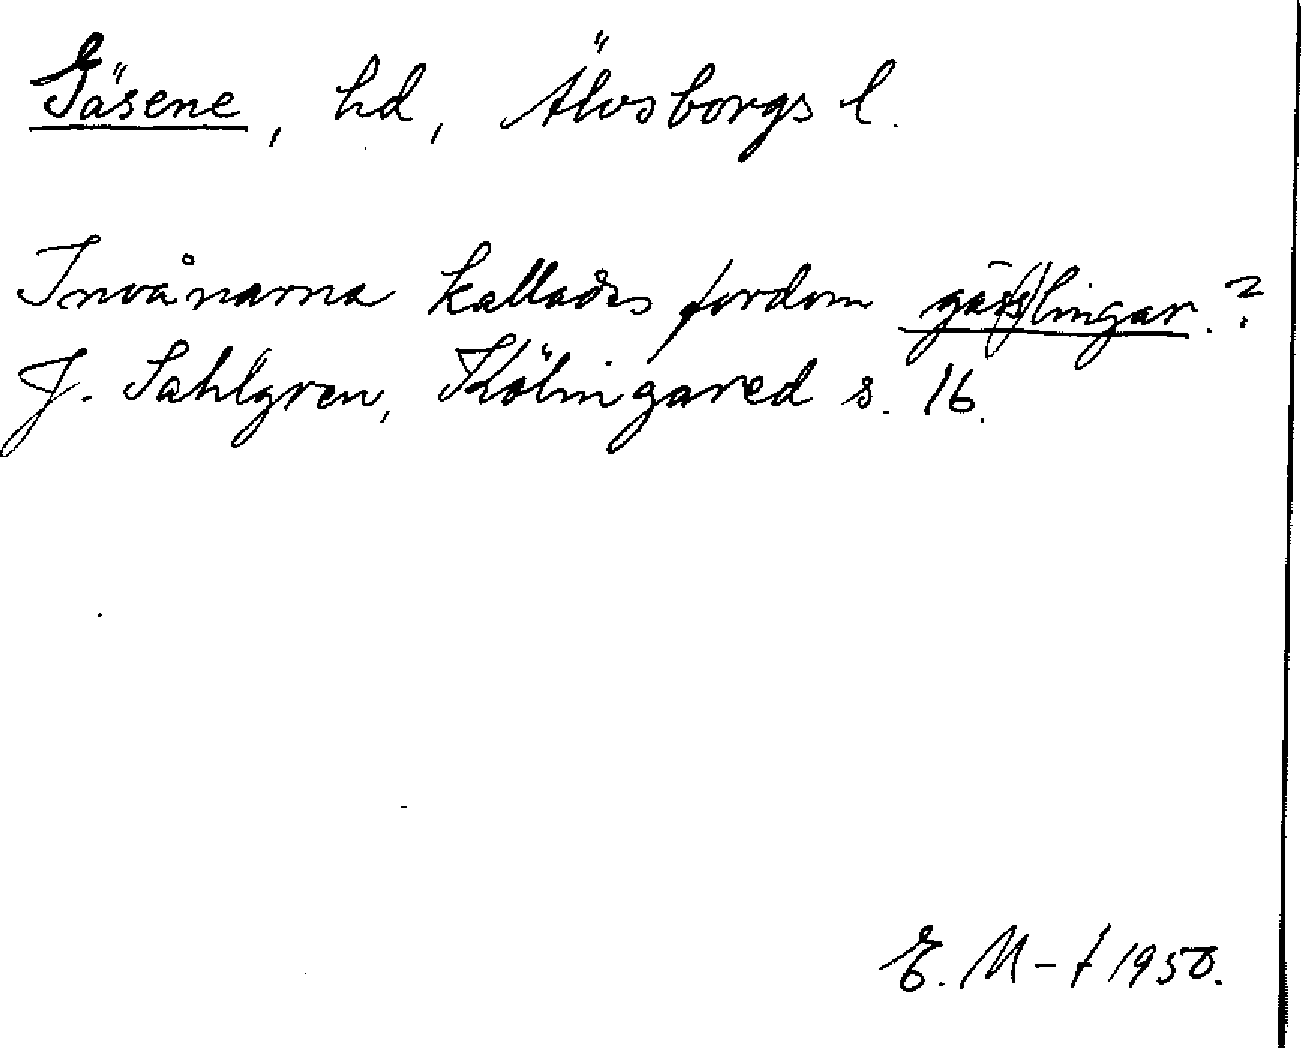 Gäsene, hd, Älvsborgs l.
Invånarna kallades fordom gäs(s)lingar.?
J. Sahlgren, Kölingared s. 16.
E. M-t 1950.